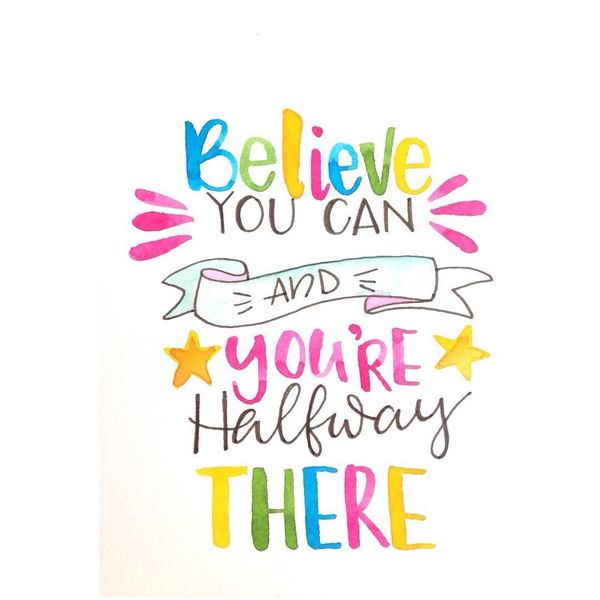 Believe
YOU CAN
AND
YOU'RE
Halfway
THERE